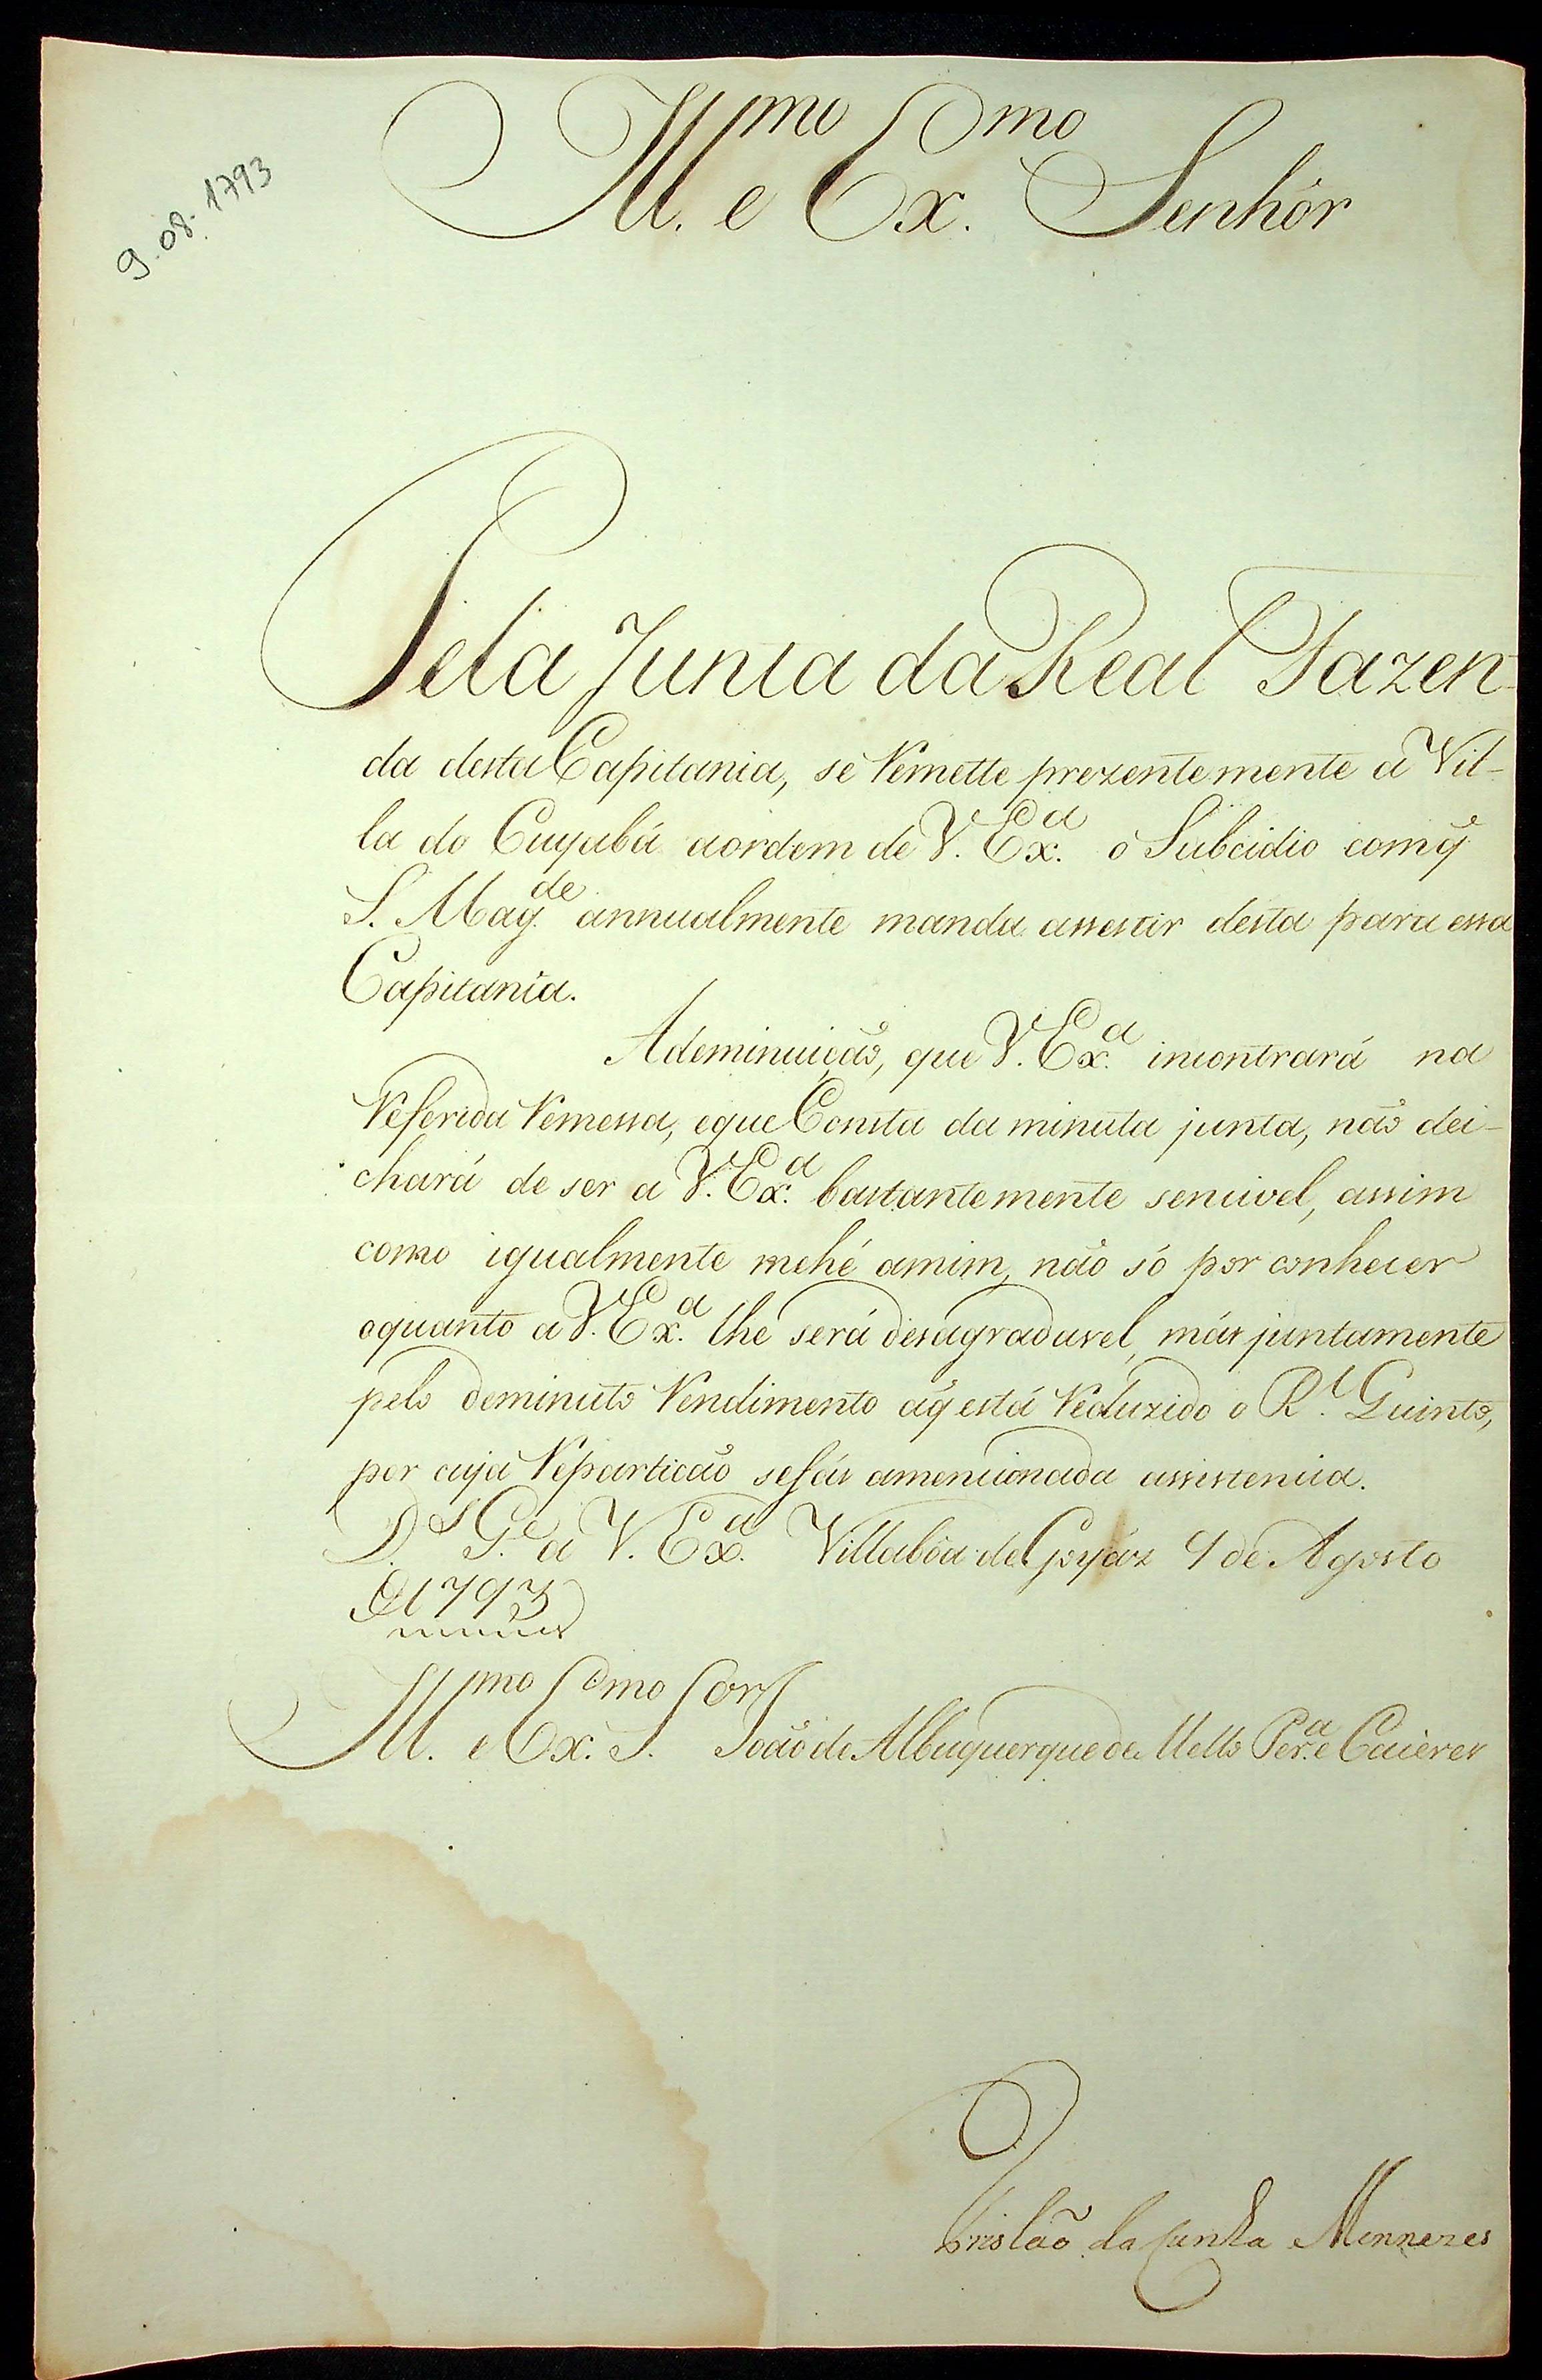 9-08-1793
Ill.mo e Ex.mo Senhôr
Pela Junta da Real Fazen-
da desta Capitania, se Remette prezentemente á Vil-
la do Cuyabá aordem de V. Ex.a o Subcidio comq̃
S. Mag.de annualmente manda assestir désta para essa
Capitania.
Ademinuiçaõ, que V. Ex.a incontrará na
Referida Remessa, eque Consta da minuta junta, naõ dei-
chará de ser a V. Ex.a bastantemente sencivel, assim
como igualmente mehé amim, naõ só por conhecer
oquanto a V. Ex.a lhe será desagradavel, más juntamente
pelo deminuto Rendimento aq̃ está Reduzido o R.l Quinto,
por cuja Repartiçaõ sefás amencionada assistencia.
D.s G.e a V. Ex.a Villabôa de Goyáz 9 de Agosto
de 1793
Ill.mo e Ex.mo S.or Joaõ de Albuquerque de Mello Per.a e Caceres
Tristaõ da Cunha Menezes